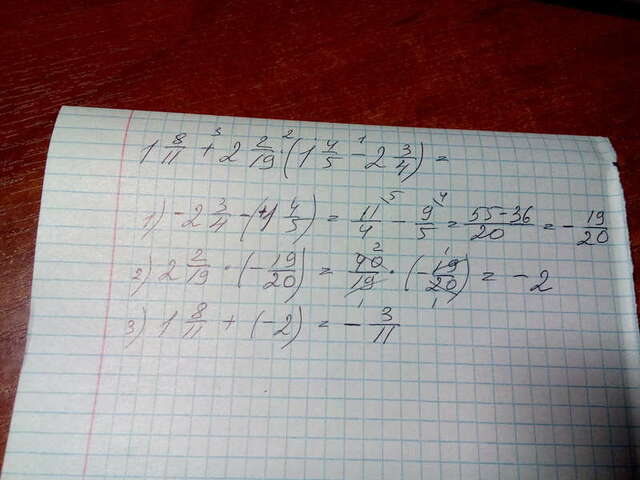 1 8/11 +³ 2 2/19 ·² (1 4/5 -¹ 2 3/4) =
1) -2 3/4 - (+1 4/5) = 11/4 \5 - 9/5 \4 = 55-36/20 = - 19/20
2) 2 2/19 · (- 19/20) = 40/19 · (- 19/20) = -2
3) 1 8/11 + (-2) = - 3/11